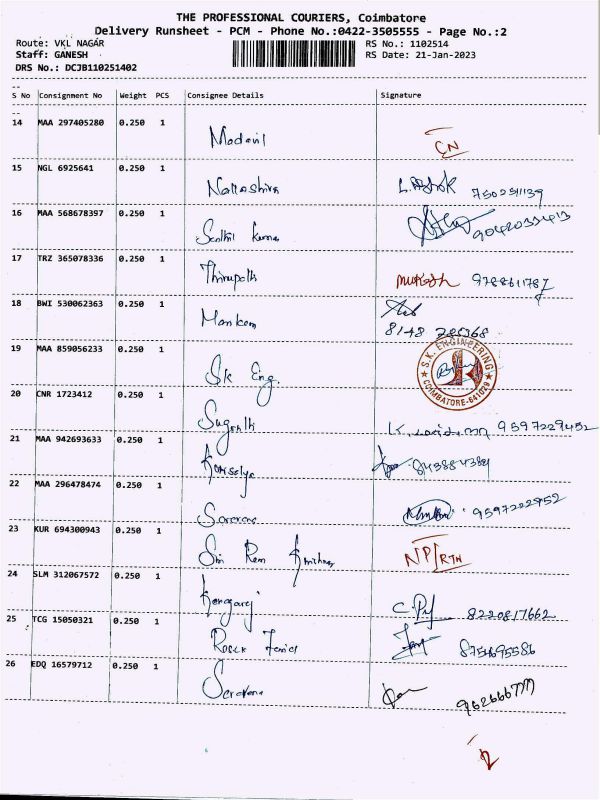 THE PROFESSIONAL COURIERS, Coimbatore
Delivery Runsheet - PCM - Phone No.:0422-3505555 - Page No.:2
Route: VKL NAGAR
RS No.: 1102514
Staff: GANESH
RS Date: 21-Jan-2023
DRS No.: DCJB110251402
S No Consignment No Weight PCS Consignee Details Signature
14 MAA 297405280 0.250 1
CN
15 NGL 6925641 0.250 1
L. Ashok 7502511139
16 MAA 568678397 0.250 1
Senthil Kumar 9042033413
17 TRZ 365078336 0.250 1
Thirupath Mukesh 9788611787
18 BWI 530062363 0.250 1
8148 285368
19 MAA 859056233 0.250 1
SK Eng.
S.K. ENGINEERING
COIMBATORE-641029
20 CNR 1723412 0.250 1
K. 9597229452
21 MAA 942693633 0.250 1
Kousalya 843884384
22 MAA 296478474 0.250 1
9597222952
23 KUR 694300943 0.250 1
Ram Krishna NP/RTN
24 SLM 312067572 0.250 1
Kangaraj 8220817662
25 TCG 15050321 0.250 1
8754695586
26 EDQ 16579712 0.250 1
Saravana
2